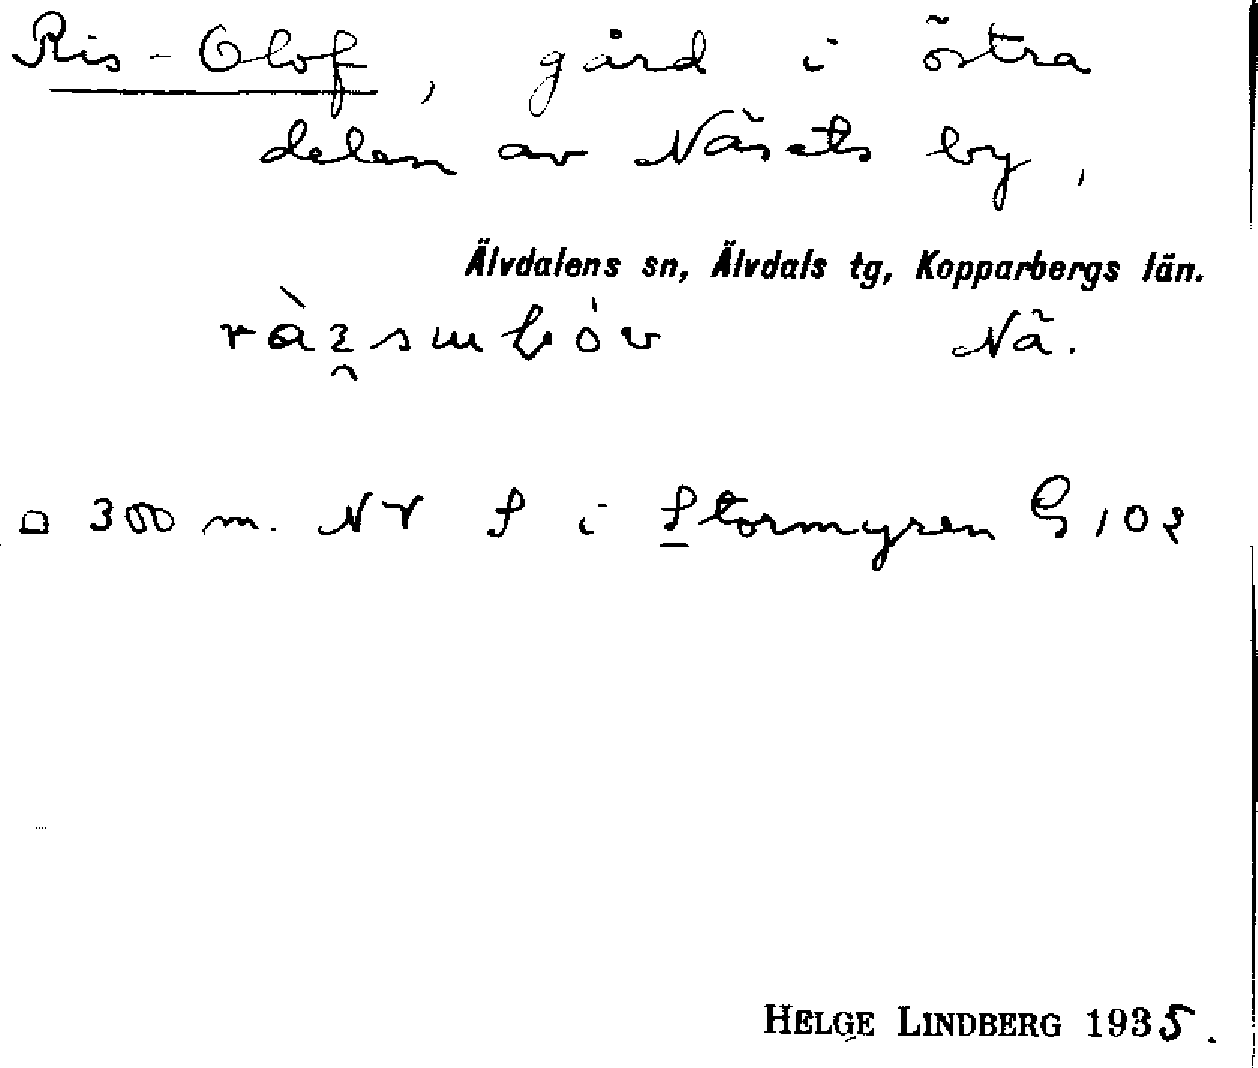 Ris-Olof, gård i östra
delen av Näsets by,
Älvdalens sn, Älvdals tg, Kopparbergs län.
Nä.
□ 300 m. NV S i Stormyren G 102
HELGE LINDBERG 1935.